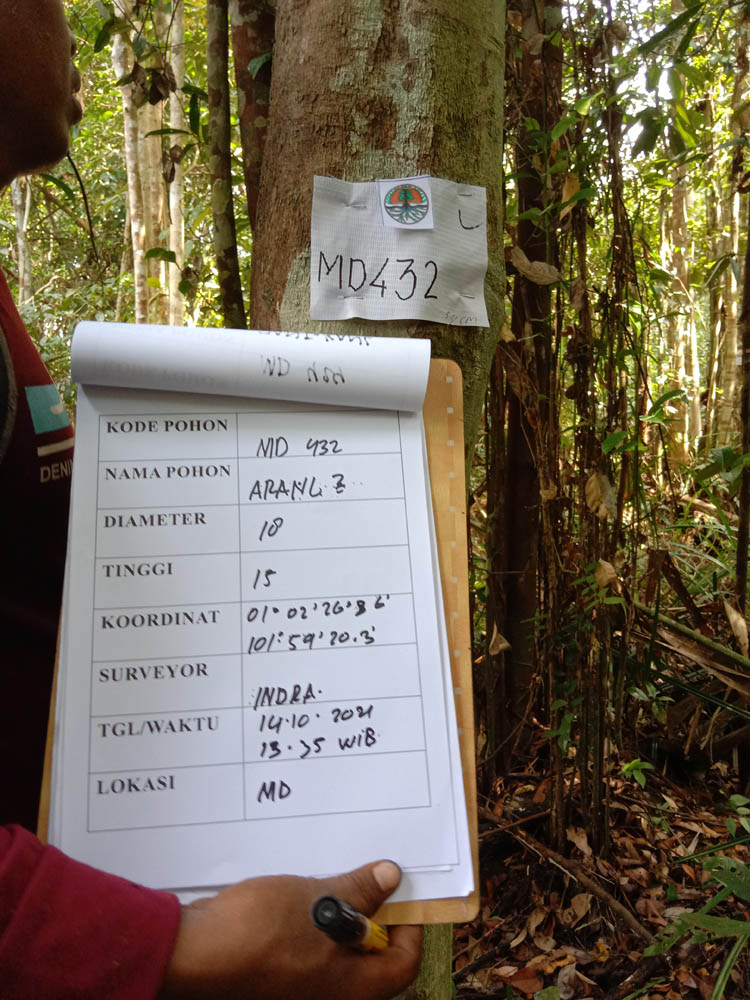 MD432
KODE POHON MD 432
NAMA POHON ARANG 3
DIAMETER 18
TINGGI 15
KOORDINAT 01° 02' 26.86'
101° 59' 20.3'
SURVEYOR INDRA.
TGL/WAKTU 14.10.2021
13.35 WIB
LOKASI MD
DENIM